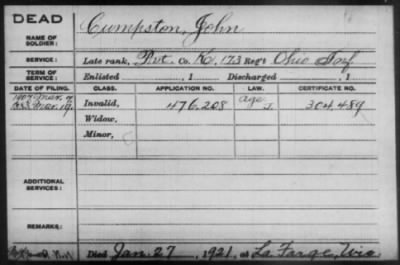 DEAD
NAME OF SOLDIER: Cumpston, John
SERVICE: Late rank, Pvt. Co. K, 173 Reg't Ohio Inf
TERM OF SERVICE: Enlisted , 1 Discharged , 1
DATE OF FILING. CLASS. APPLICATION NO. LAW. CERTIFICATE NO.
1907 Mar.
Mar. 19. Invalid, 476.208 age J. 304,489
Widow,
Minor,
ADDITIONAL SERVICES:
REMARKS:
Died Jan. 27, 1921, at La Farge, Wis.